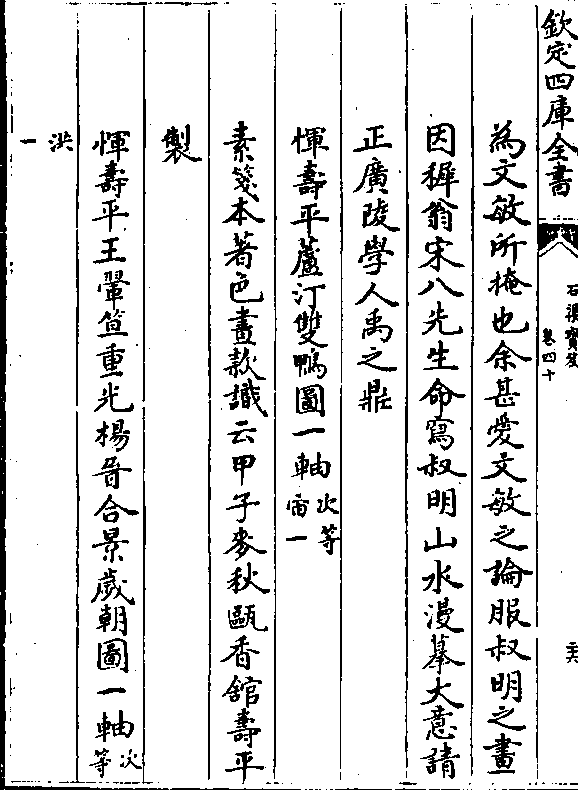 欽定四庫全書
石渠寶笈
卷四十
為文敏所掩也余甚愛文敏之論服叔明之畫
因穉翁宋八先生命寫叔明山水漫摹大意請
正廣陵學人禹之鼎
惲壽平蘆汀雙鴨圖一軸次等
宙一
素箋本著色畫款識云甲子麥秋甌香館壽平
製
惲壽平王翬笪重光楊晉合景歲朝圖一軸次
等
洪
一